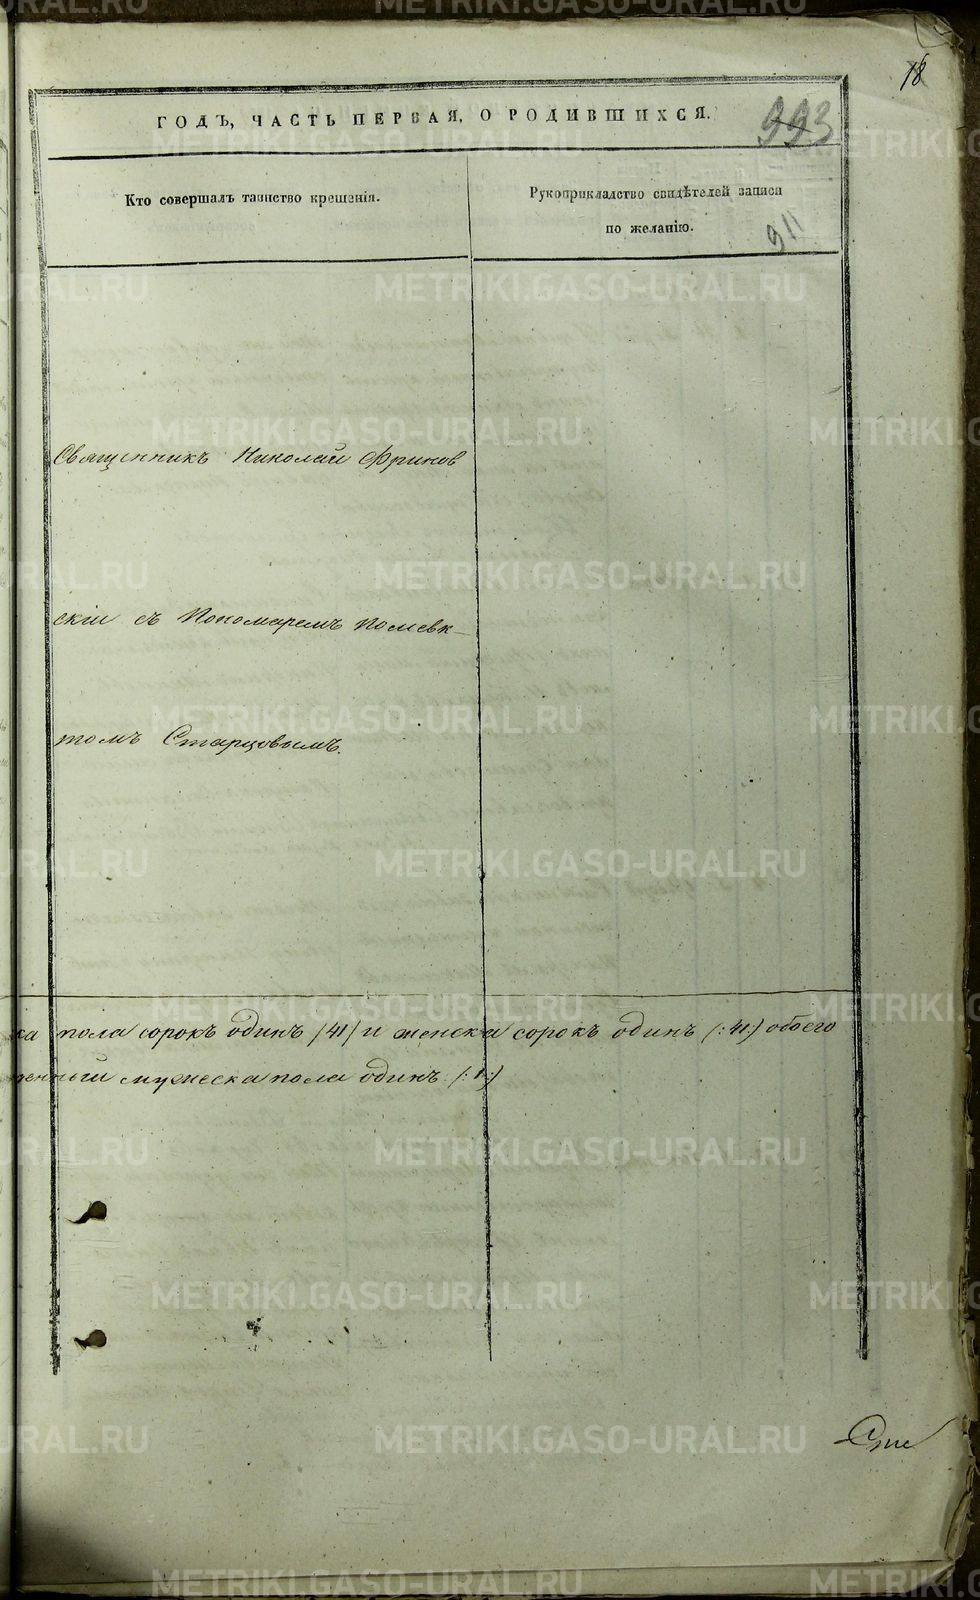 18
ГОДЪ, ЧАСТЬ ПЕРВАЯ, О РОДИВШИХСЯ.
993
Кто совершалъ таинство крещенія.
Рукоприкладство свидѣтелей записи
по желанію.
911
Священникъ Николай Фринов
скій съ Пономаремъ Полиевк-
томъ Старцовымъ.
ка пола сорокъ одинъ (41) и женска сорокъ одинъ (:41:) обоего
енный мужеска пола одинъ (:1:)
METRIKI.GASO-URAL.RU